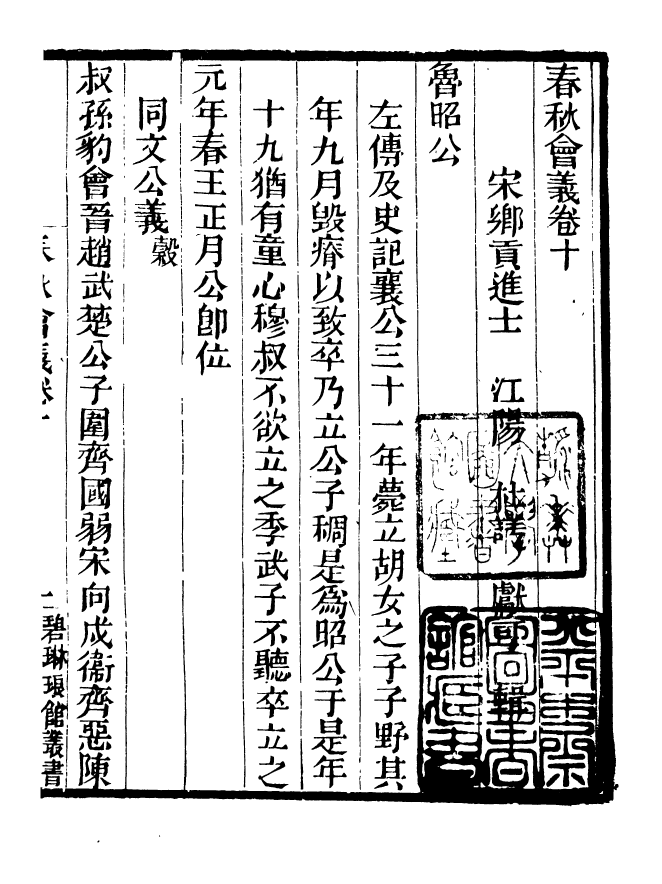 春秋會義卷十
宋鄉貢進士 江陽 杜諤 獻可 輯
魯昭公
左傳及史記襄公三十一年薨立胡女之子子野其
年九月毀瘠以致卒乃立公子稠是爲昭公于是年
十九猶有童心穆叔不欲立之季武子不聽卒立之
元年春王正月公卽位
同文公義穀
叔孫豹會晉趙武楚公子圍齊國弱宋向戌衞齊惡陳
春秋會義卷十 一 碧琳琅館叢書